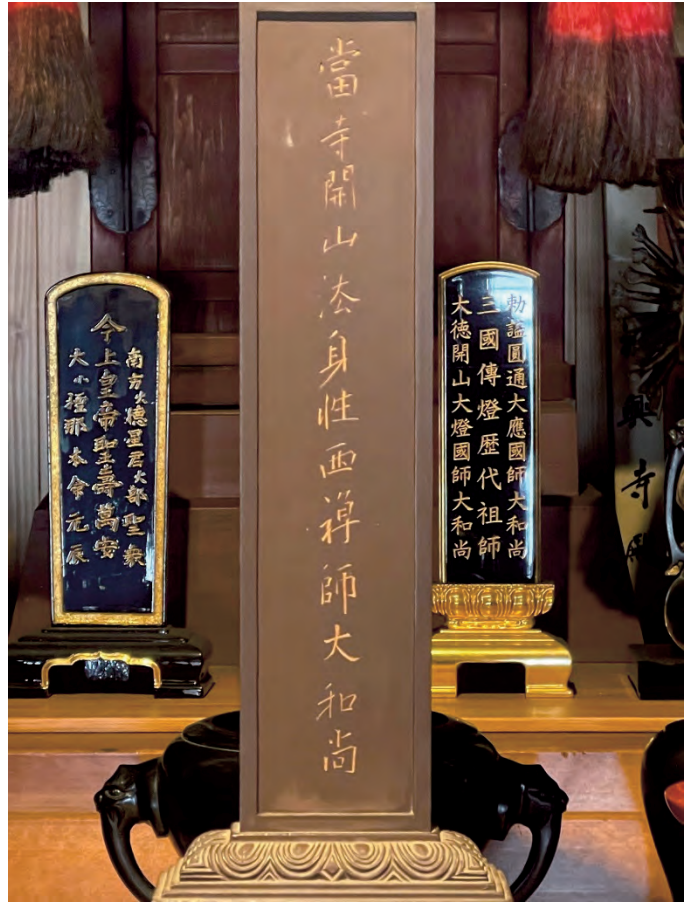 當寺開山法身性西禅師大和尚
勅諡圓通大應國師大和尚
三國傳燈歴代祖師
大徳開山大燈國師大和尚
南方火徳星君火部聖衆
今上皇帝聖壽萬安
大小檀那本命元辰
興寺